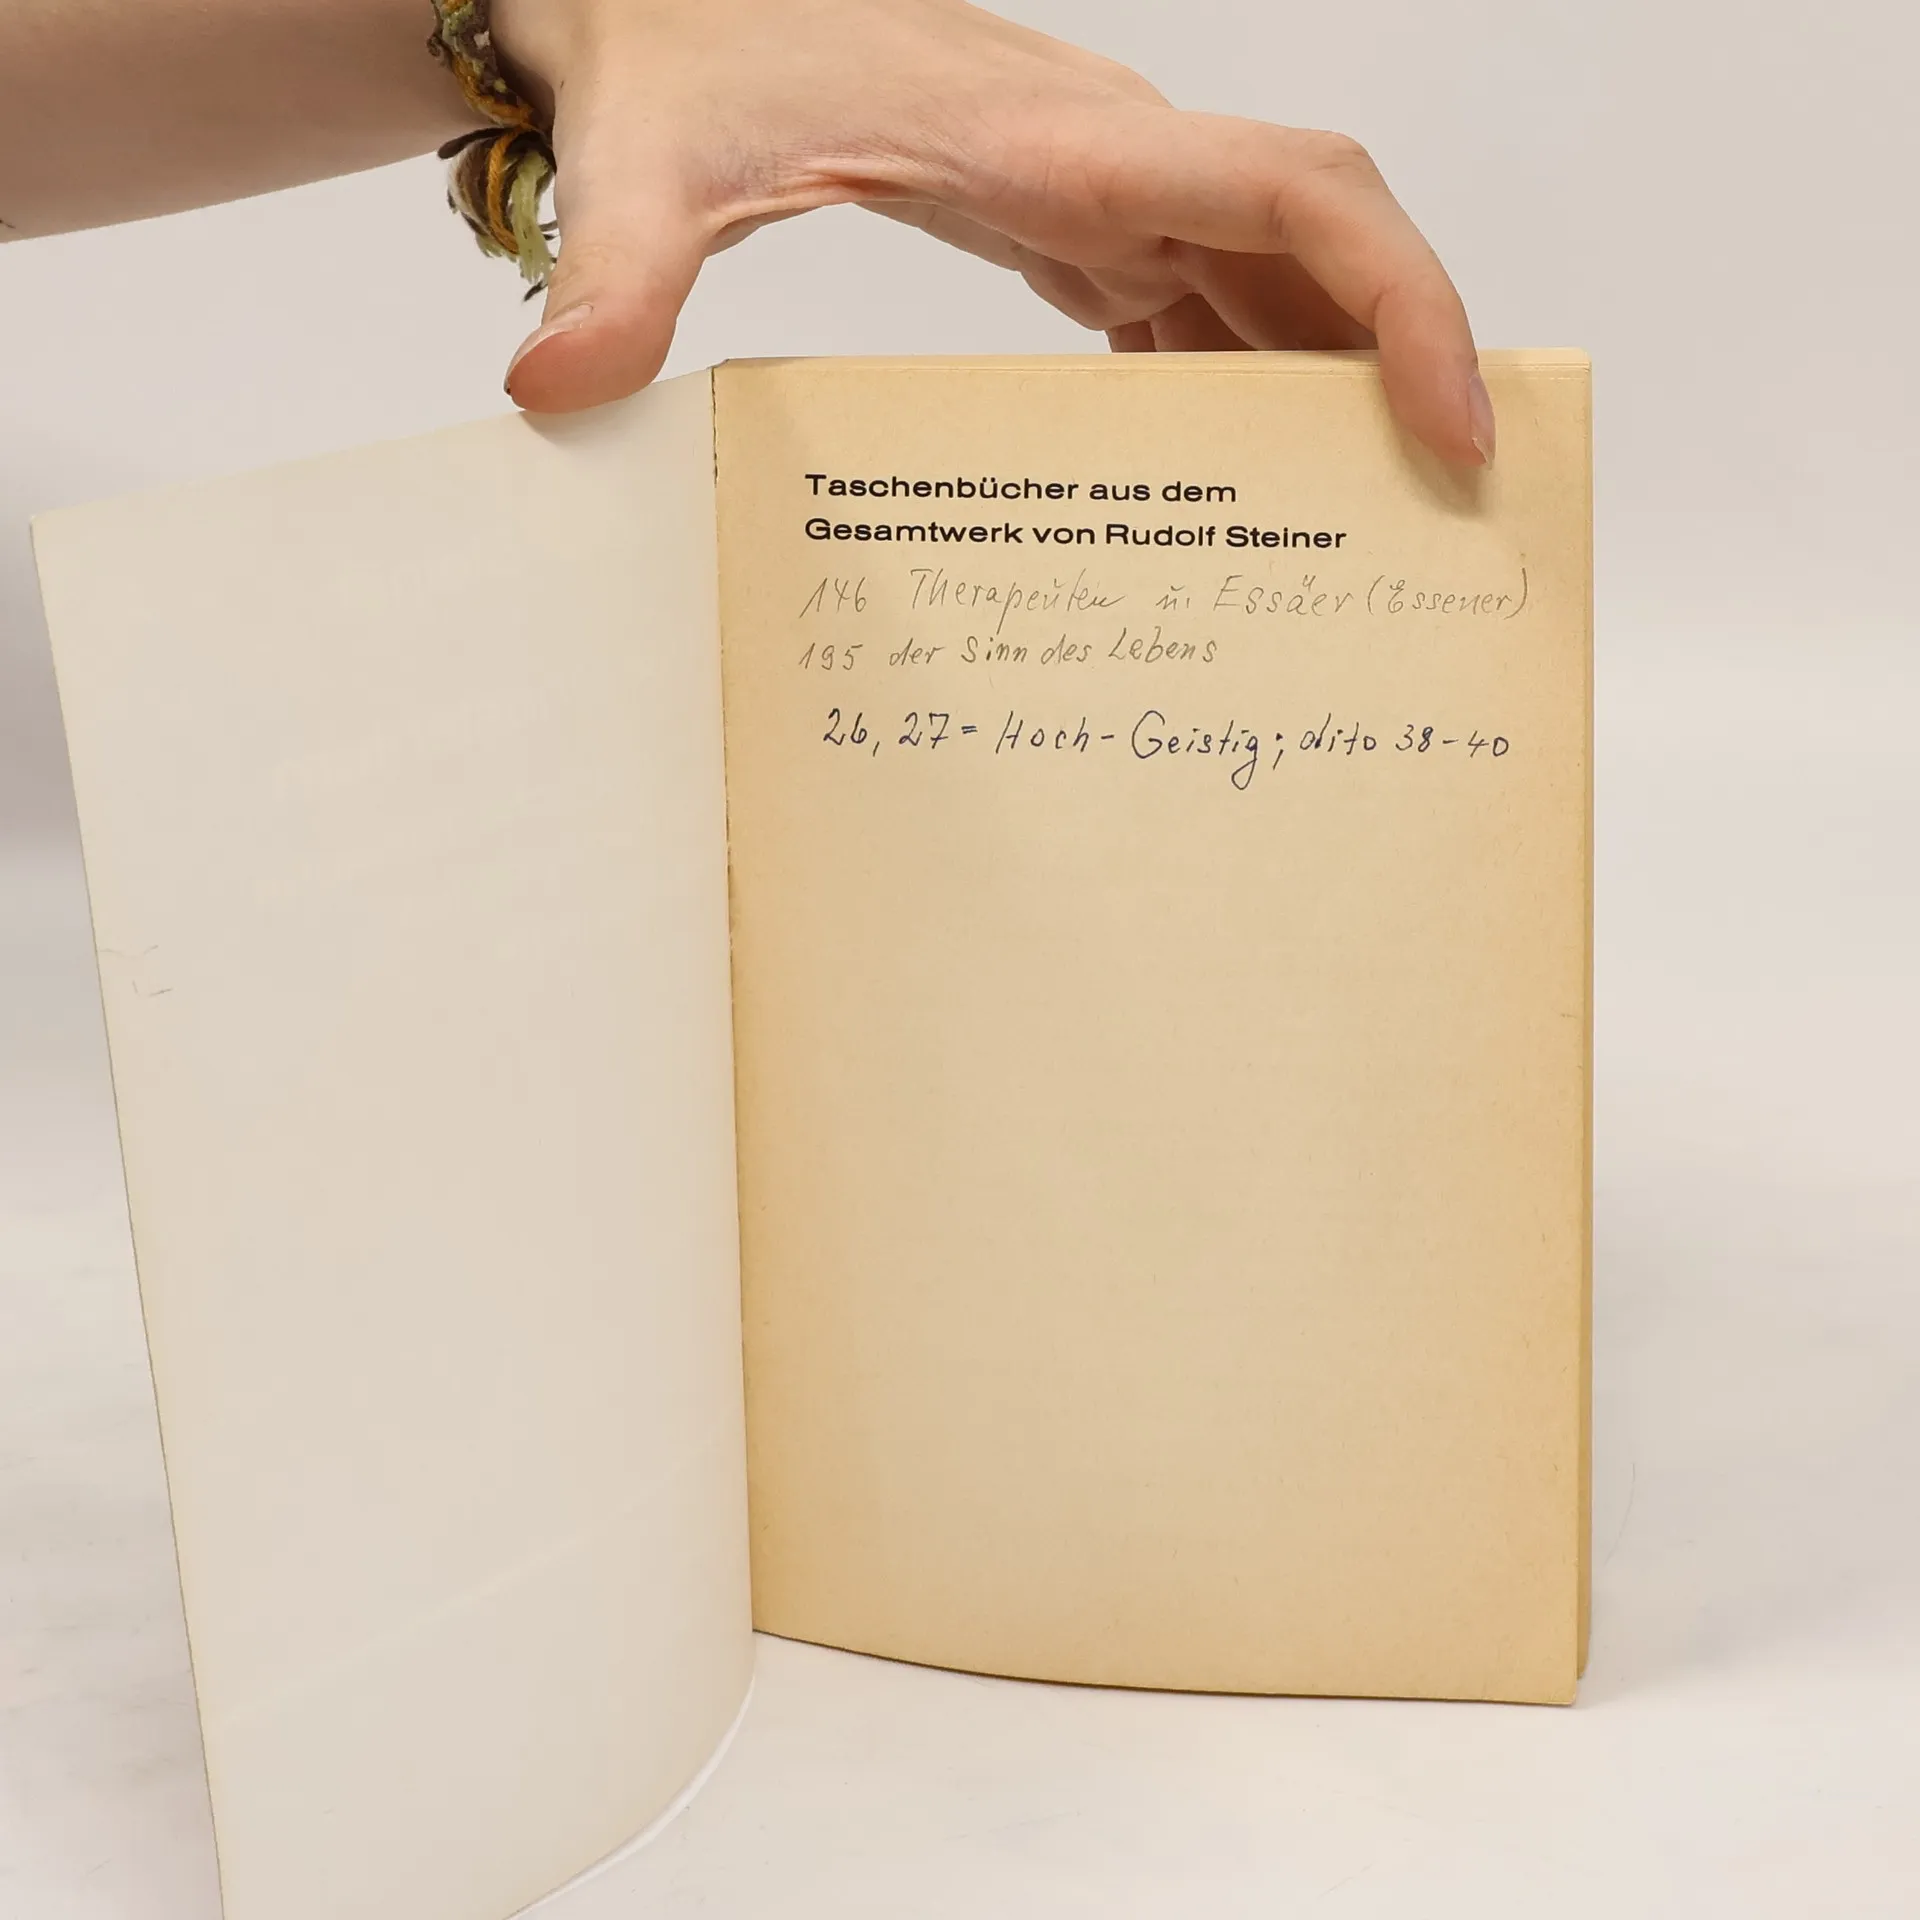 Taschenbücher aus dem
Gesamtwerk von Rudolf Steiner
146 Therapeuten u. Essäer (Essener)
195 der Sinn des Lebens
26, 27 = Hoch-Geistig; dito 38-40